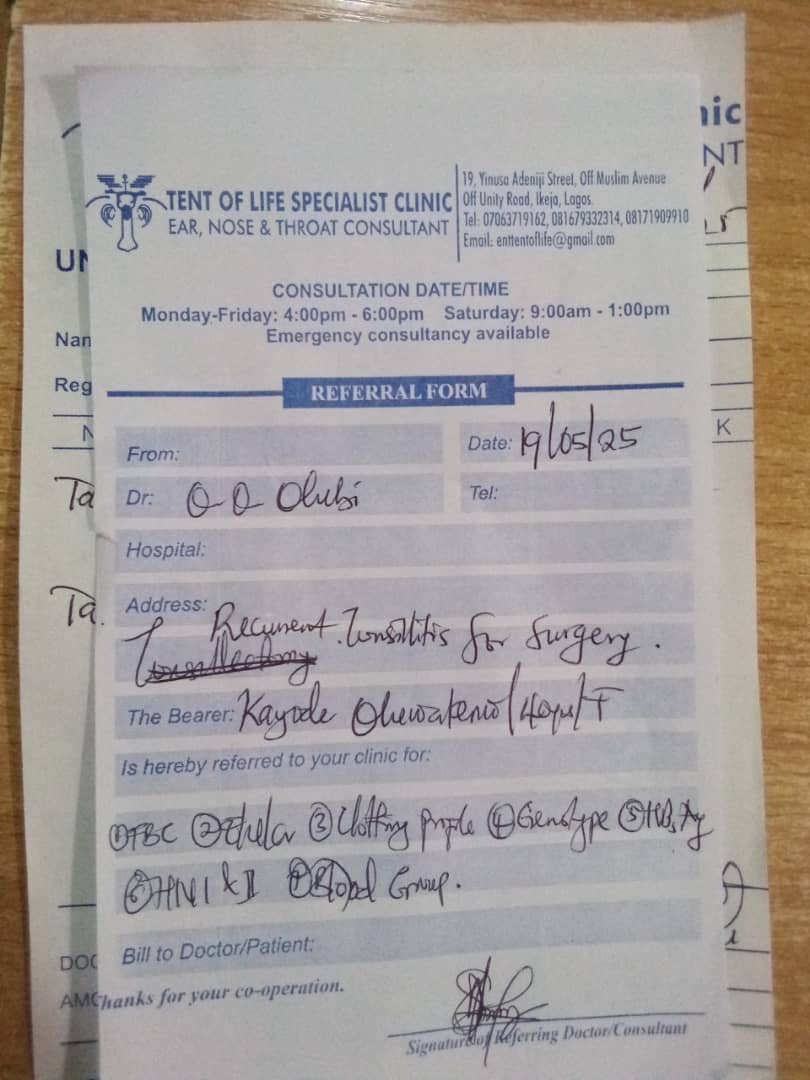 nic
NT
TENT OF LIFE SPECIALIST CLINIC
EAR, NOSE & THROAT CONSULTANT
19, Yinusa Adeniji Street, Off Muslim Avenue
Off Unity Road, Ikeja, Lagos.
Tel: 07063719162, 081679332314, 08171909910
Email: enttentoflife@gmail.com
UN
CONSULTATION DATE/TIME
Monday-Friday: 4:00pm - 6:00pm Saturday: 9:00am - 1:00pm
Emergency consultancy available
Nam
Reg
REFERRAL FORM
N
K
From:
Date: 19/05/25
Ta
Dr: O O Olubi
Tel:
Hospital:
Ta.
Address: Recurrent Tonsillitis for Surgery.
Tonsillectomy
The Bearer: Kayode /F
Is hereby referred to your clinic for:
① FBC ② E/u/cr ③ Clotting profile ④ Genotype ⑤ HBsAg
⑥ HIV I & II ⑦ Blood Group.
Bill to Doctor/Patient:
DOC
AMO
hanks for your co-operation.
Signature of Referring Doctor/Consultant